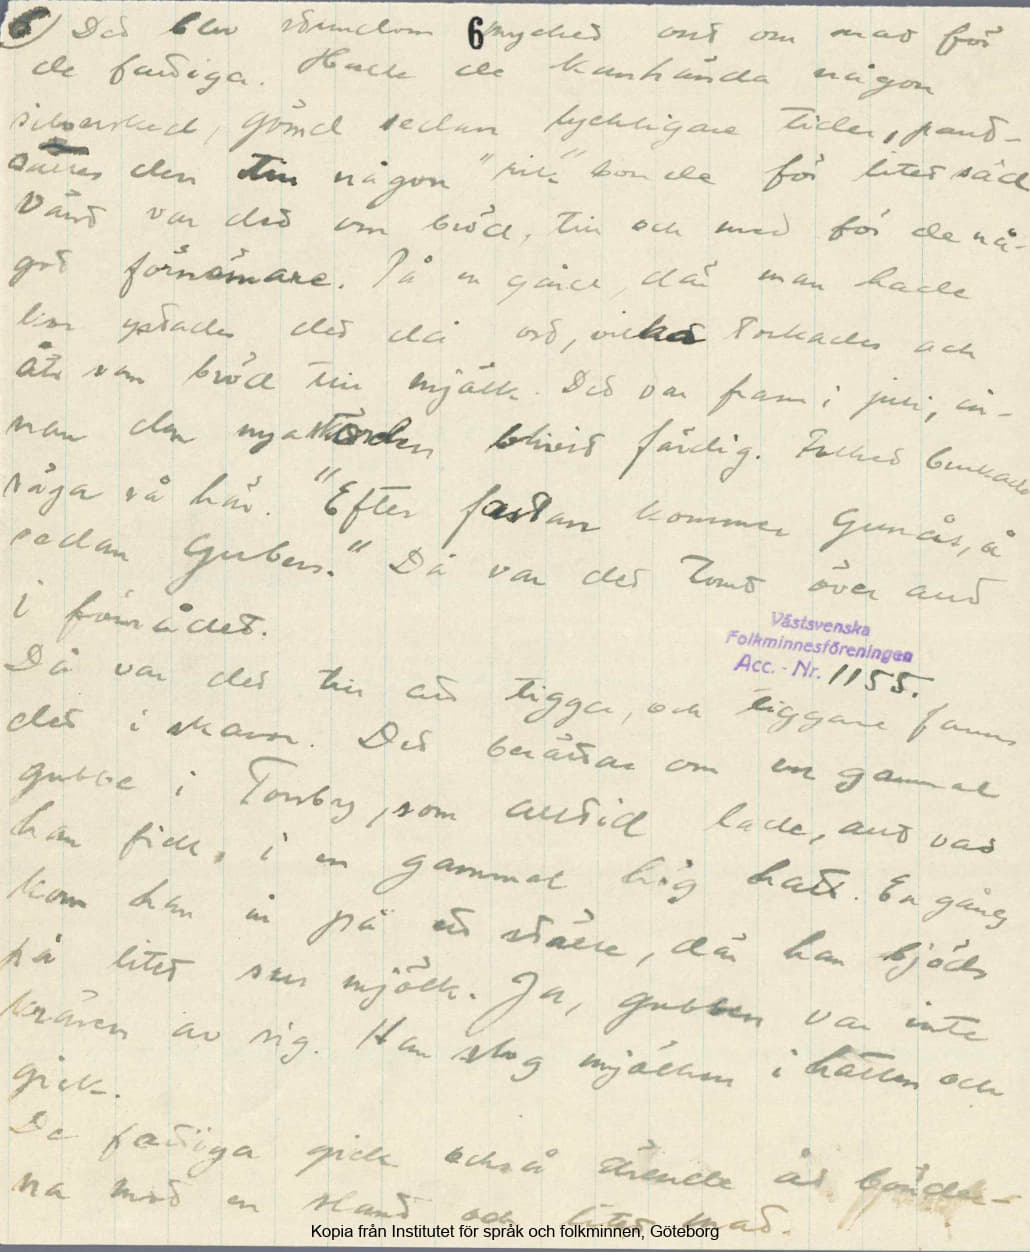 6) Det blev stundom 6 mycket ont om mat för
de fattiga. Hade de kanhända någon
silversked, gömd sedan lyckligare tider, pant-
sattes den till någon "rik" bonde för litet säd
Värst var det om bröd, till och med för de nå-
got förnämare. På en gård, där man hade
kor ystades det då ost, vilket torkades och
åts som bröd till mjölk. Det var fram i juli, in-
nan den nya skörden blivit färdig. Folket brukade
säga så här. "Efter fastan kommer Gunås, å
sedan Gubens." Då var det tomt över allt
i förrådet.
Västsvenska
Folkminnesföreningen
Acc. - Nr. 1155.
Då var det till att tigga, och tiggare fanns
det i skaror. Det berättas om en gammal
gubbe i Torsby, som alltid lade, allt vad
han fick, i en gammal hög hatt. En gång
kom han in på ett ställe, där han bjöds
på litet sur mjölk. Ja, gubben var inte
kräsen av sig. Han slog mjölken i hatten och
gick.
De fattiga gick också ärende åt bönder-
na med en och litet mat.
Kopia från Institutet för språk och folkminnen, Göteborg